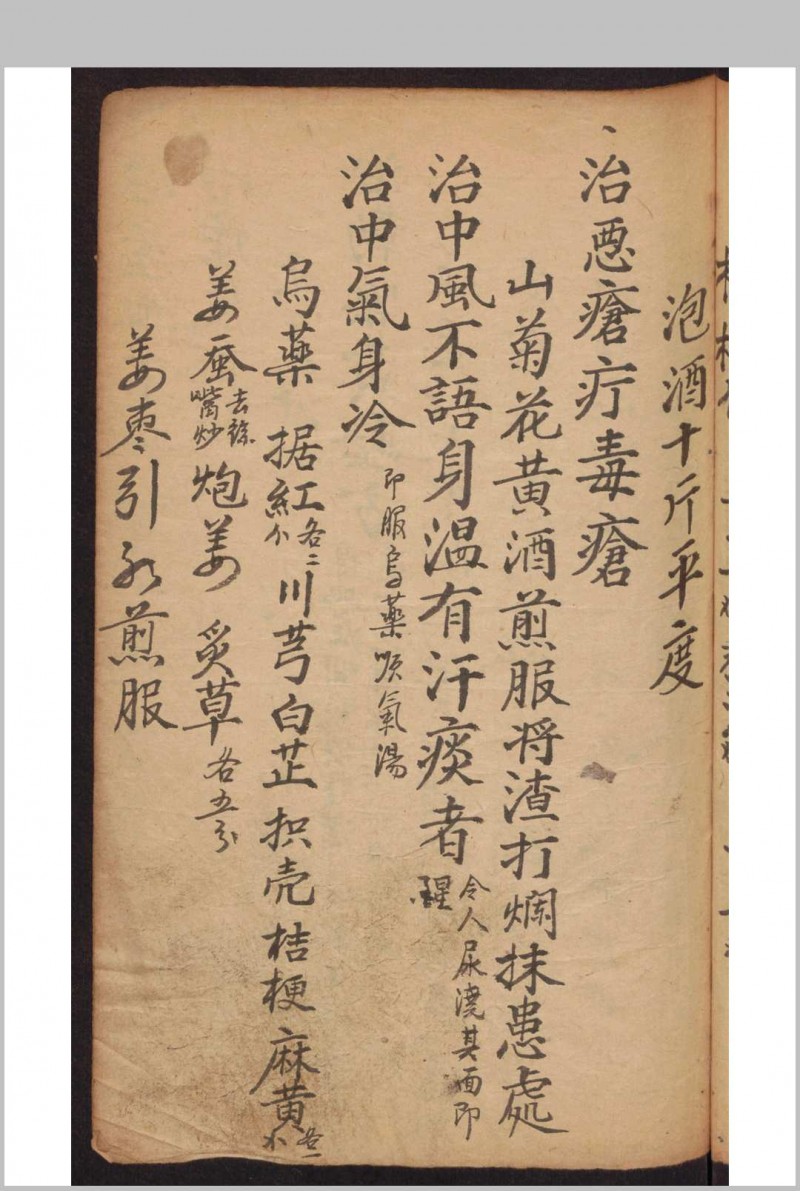 泡酒十斤平度
治惡瘡疔毒瘡
山菊花黄酒煎服将渣打爛抹患處
治中風不語身温有汗痰者 令人尿澆其面即醒
治中氣身冷 即服烏藥順氣湯
烏藥 据紅各二 川芎白芷 枳壳桔梗麻黄各一
姜蚕去絲嘴炒 炮姜 炙草 各五分
姜枣引水煎服